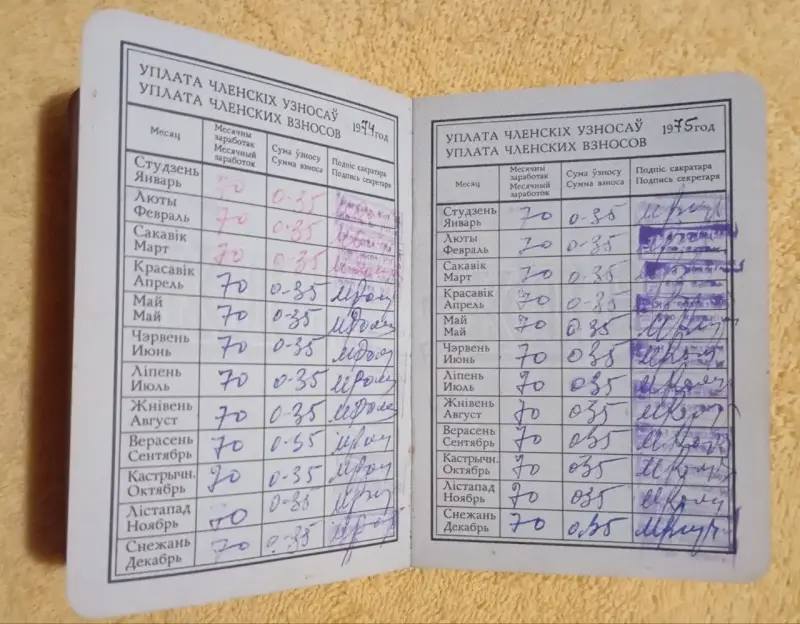 УПЛАТА ЧЛЕНСКІХ УЗНОСАЎ
УПЛАТА ЧЛЕНСКИХ ВЗНОСОВ 1974 год
Месяц
Месячны заработак
Месячный заработок
Сума ўзносу
Сумма взноса
Подпіс сакратара
Подпись секретаря
Студзень
Январь 70 0-35
Люты
Февраль 70 0-35
Сакавік
Март 70 0-35
Красавік
Апрель 70 0-35
Май
Май 70 0-35
Чэрвень
Июнь 70 0-35
Ліпень
Июль 70 0-35
Жнівень
Август 70 0-35
Верасень
Сентябрь 70 0-35
Кастрычн.
Октябрь 70 0-35
Лістапад
Ноябрь 70 0-35
Снежань
Декабрь 70 0-35
УПЛАТА ЧЛЕНСКІХ УЗНОСАЎ
УПЛАТА ЧЛЕНСКИХ ВЗНОСОВ 1975 год
Месяц
Месячны заработак
Месячный заработок
Сума ўзносу
Сумма взноса
Подпіс сакратара
Подпись секретаря
Студзень
Январь 70 0-35
Люты
Февраль 70 0-35
Сакавік
Март 70 0-35
Красавік
Апрель 70 0-35
Май
Май 70 0-35
Чэрвень
Июнь 70 0-35
Ліпень
Июль 70 035
Жнівень
Август 70 035
Верасень
Сентябрь 70 035
Кастрычн.
Октябрь 70 035
Лістапад
Ноябрь 70 035
Снежань
Декабрь 70 0,35